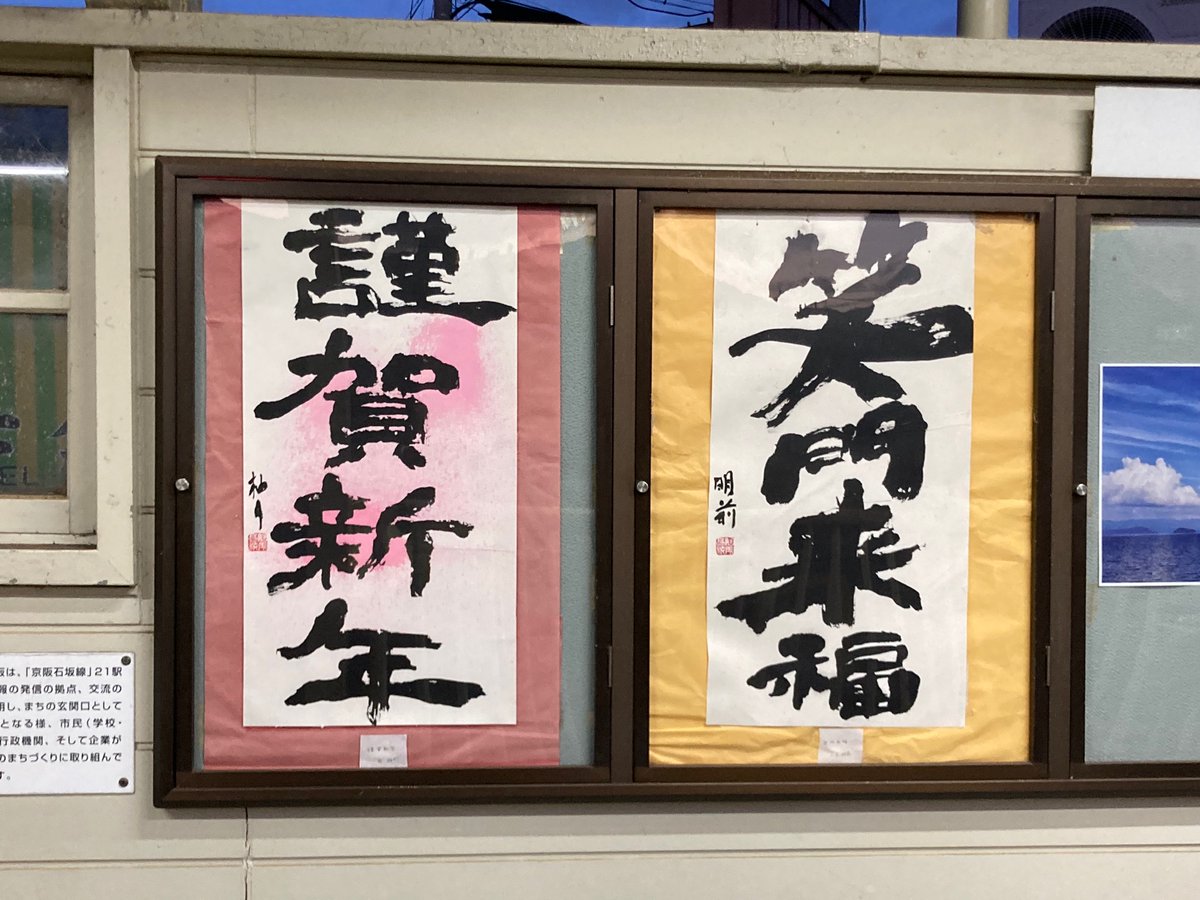 謹賀新年
笑門来福
明前
阪は、「京阪石坂線」21駅
報の発信の拠点、交流の
明し、まちの玄関口として
となる様、市民(学校・
行政機関、そして企業が
のまちづくりに取り組んで
す。